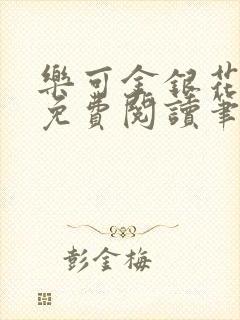 樂可金銀花
免費閱讀筆
彭金梅